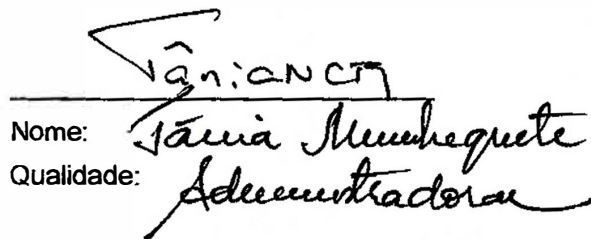 Nome: Tánia Munhequete
Qualidade: Administradora